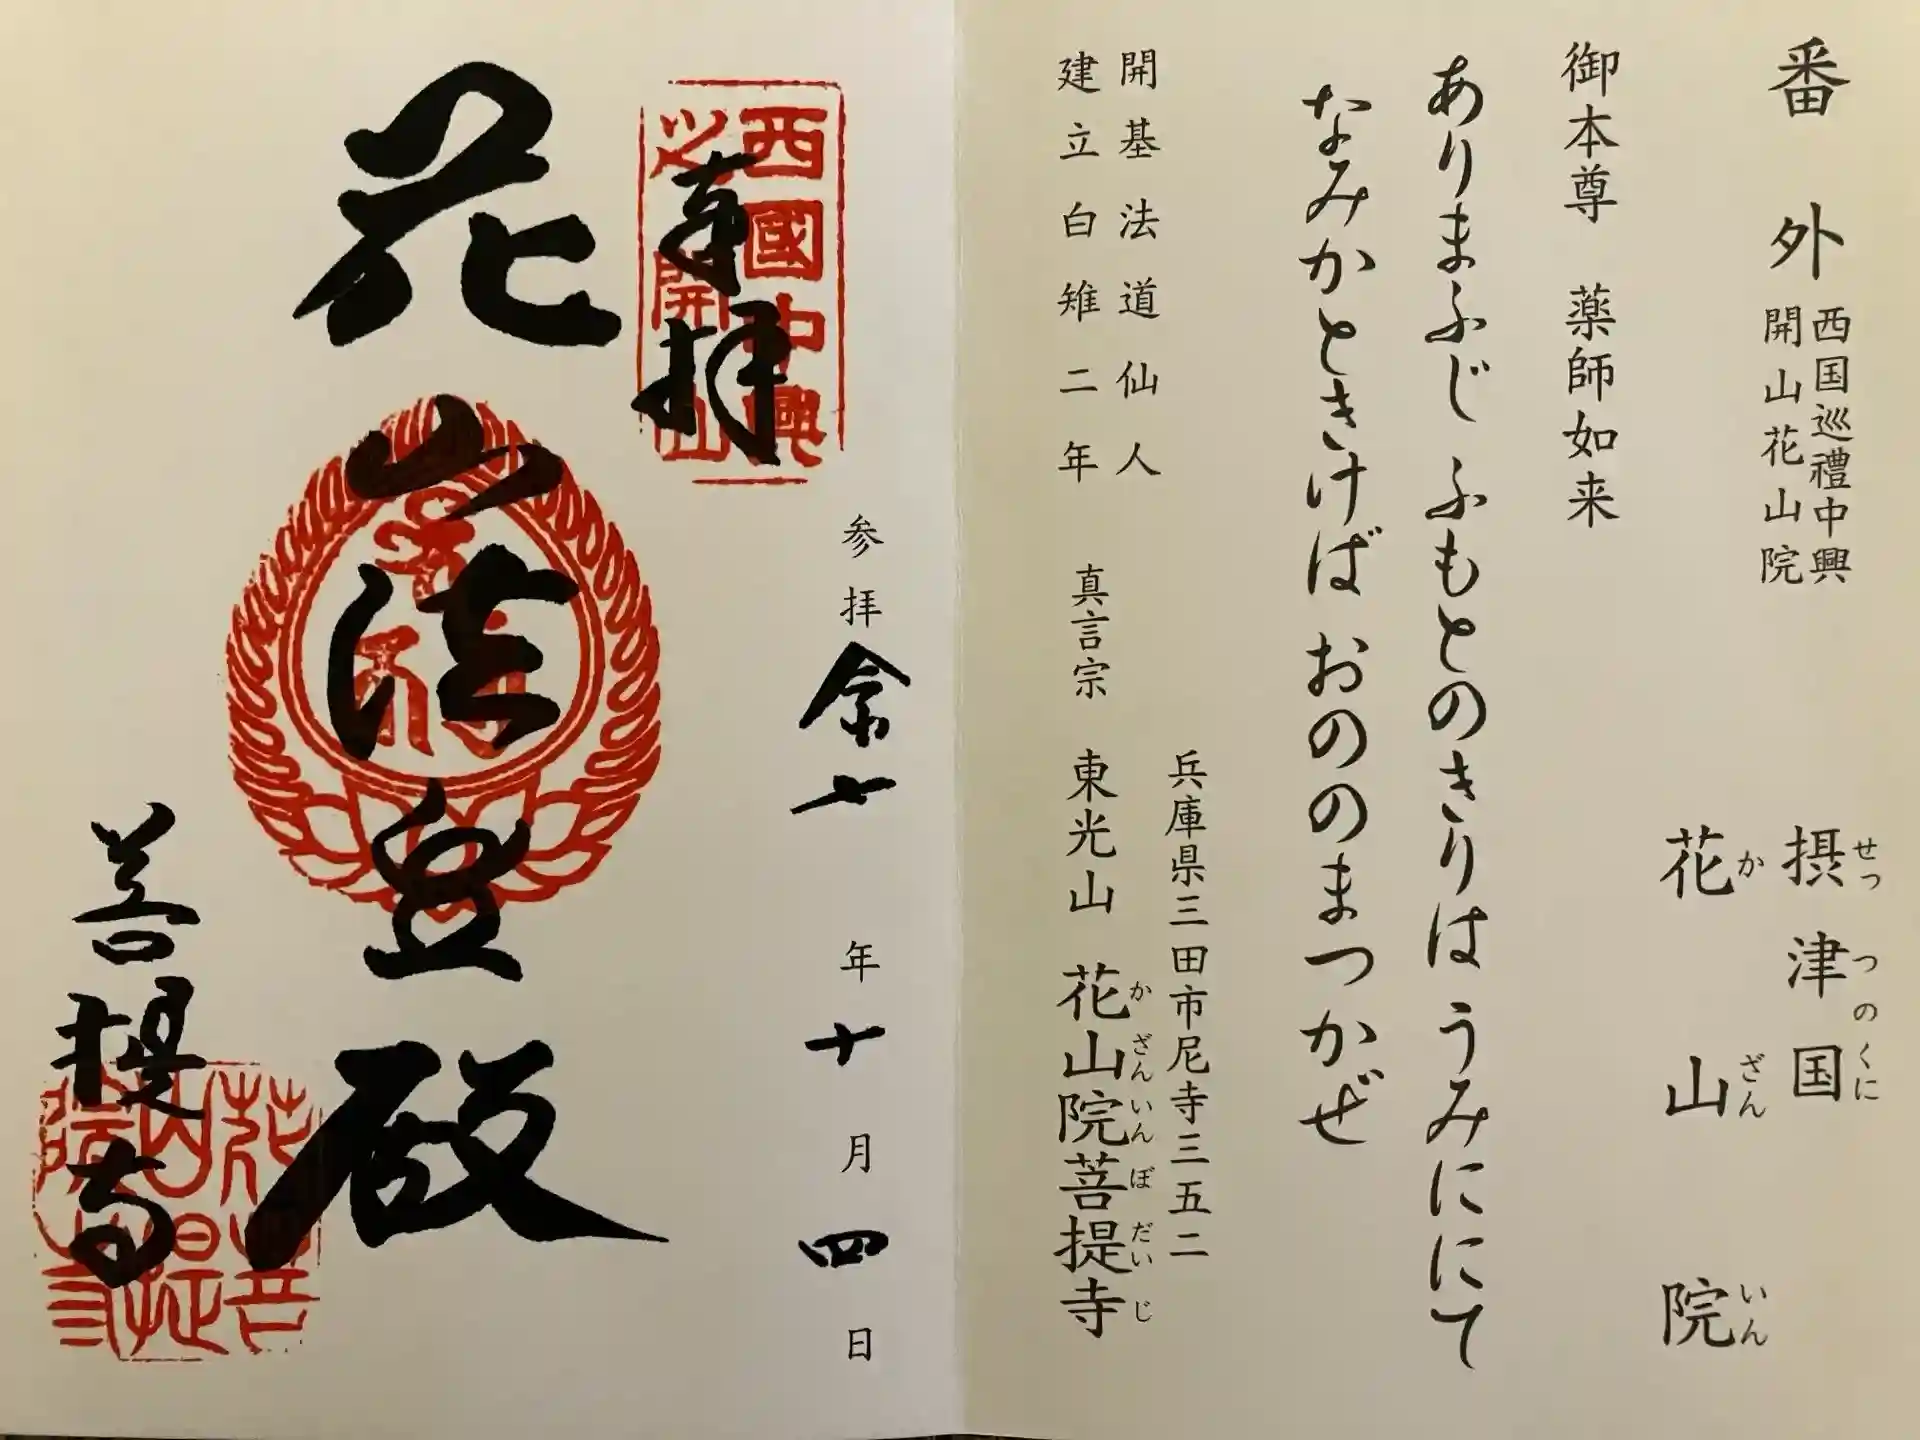 番外
西国巡禮中興
開山花山院
摂津国
せっつのくに
花山院
かざんいん
御本尊 薬師如来
ありまふじ ふもとのきりは うみににて
なみかときけば おののまつかぜ
開基法道仙人
建立白雉二年
兵庫県三田市尼寺三五二
真言宗 東光山 花山院菩提寺
かざんいんぼだいじ
西國中興
開山
奉拝
参拝 令七年十月四日
花山法皇殿
菩提寺
花山院
菩提寺